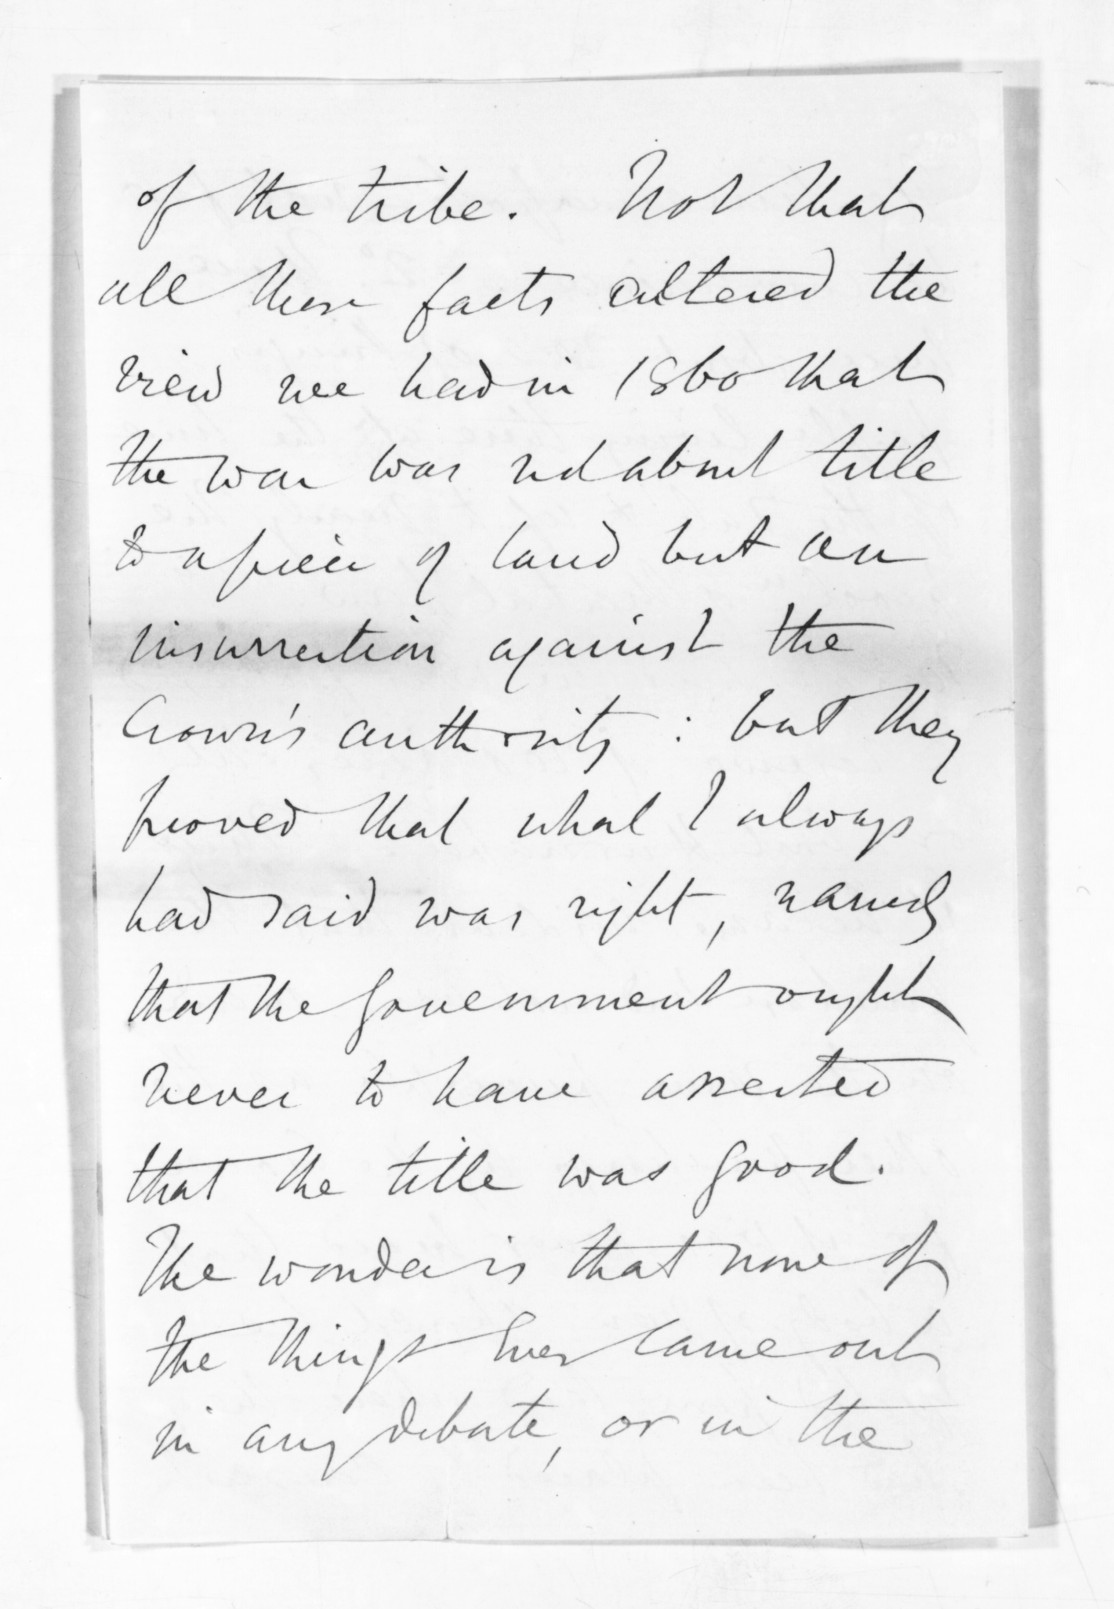 of the tribe. Not that
all these facts altered the
view we had in 1860 that
the war was not about title
to a piece of land but an
insurrection against the
Crown's authority: but they
proved that what I always
had said was right, namely
that the Government ought
never to have asserted
that the title was good.
The wonder is that none of
the things ever came out
in any debate, or in the